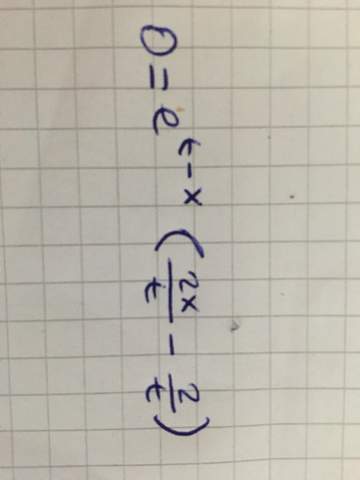 0 = e^{t-x} (\frac{2x}{t} - \frac{2}{t})